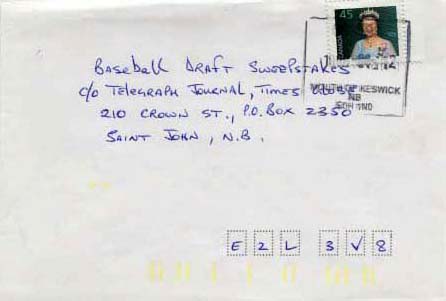 45
CANADA
MOUTH OF KESWICK
NB
BASEBALL DRAFT SWEEPSTAKES
c/o TELEGRAPH JOURNAL, TIMES GLOBE
210 CROWN ST., P.O. BOX 2350
SAINT JOHN, N.B.
E2L 3V8